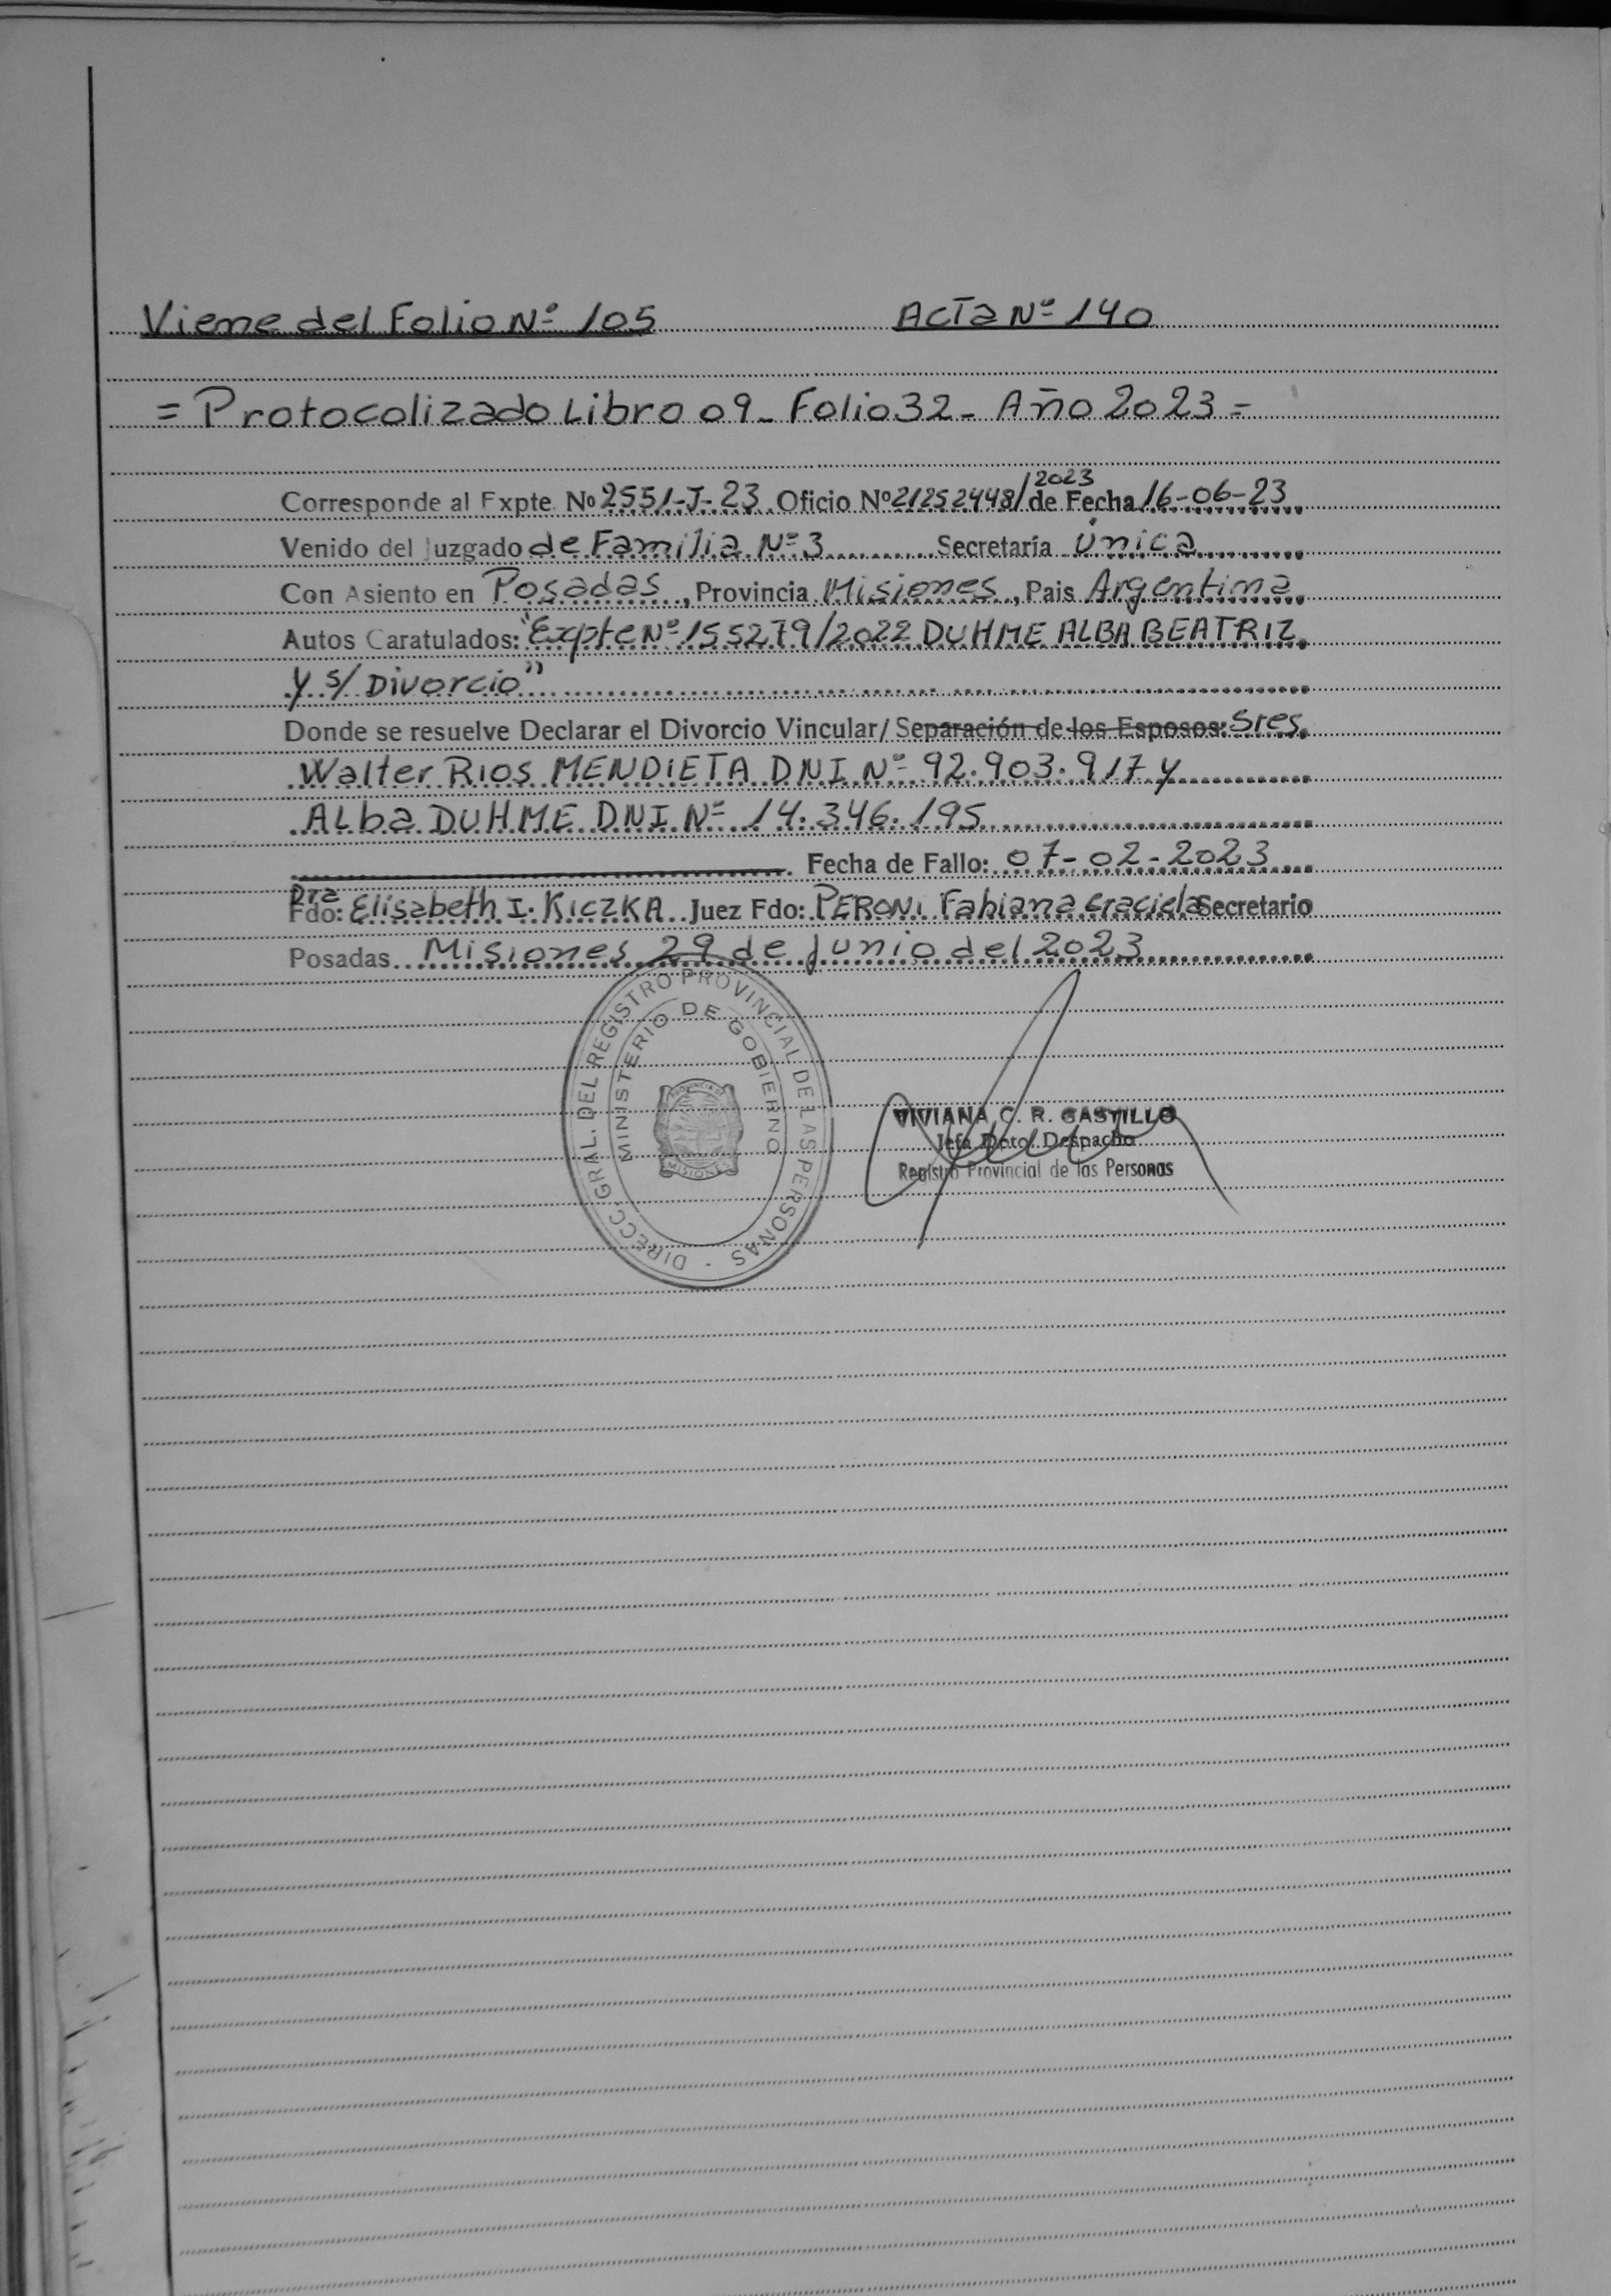 Viene del Folio Nº 105 Acta Nº 140
= Protocolizado Libro 09 - Folio 32 - Año 2023 =
2023
Corresponde al Expte. Nº 2551-J-23 Oficio Nº 21252448/ de Fecha 16-06-23
Venido del Juzgado de Familia Nº 3 Secretaría única
Con Asiento en Posadas, Provincia Misiones, Pais Argentina
Autos Caratulados: "Expte Nº 155279/2022 DUHME ALBA BEATRIZ
Y s/ Divorcio"
Donde se resuelve Declarar el Divorcio Vincular/ Separación de los Esposos: Sres.
Walter RIOS MENDIETA DNI Nº 92.903.917 y
Alba DUHME DNI Nº 14.346.195
Fecha de Fallo: 07-02-2023
Dra
Fdo: Elisabeth I. KICZKA Juez Fdo: PERONI Fabiana Graciela Secretario
Posadas Misiones 29 de junio del 2023
DIRECC. GRAL. DEL REGISTRO PROVINCIAL DE LAS PERSONAS -
MINISTERIO DE GOBIERNO
PROVINCIA DE
MISIONES
VIVIANA C. R. CASTILLO
Jefa Dpto. Despacho
Registro Provincial de las Personas